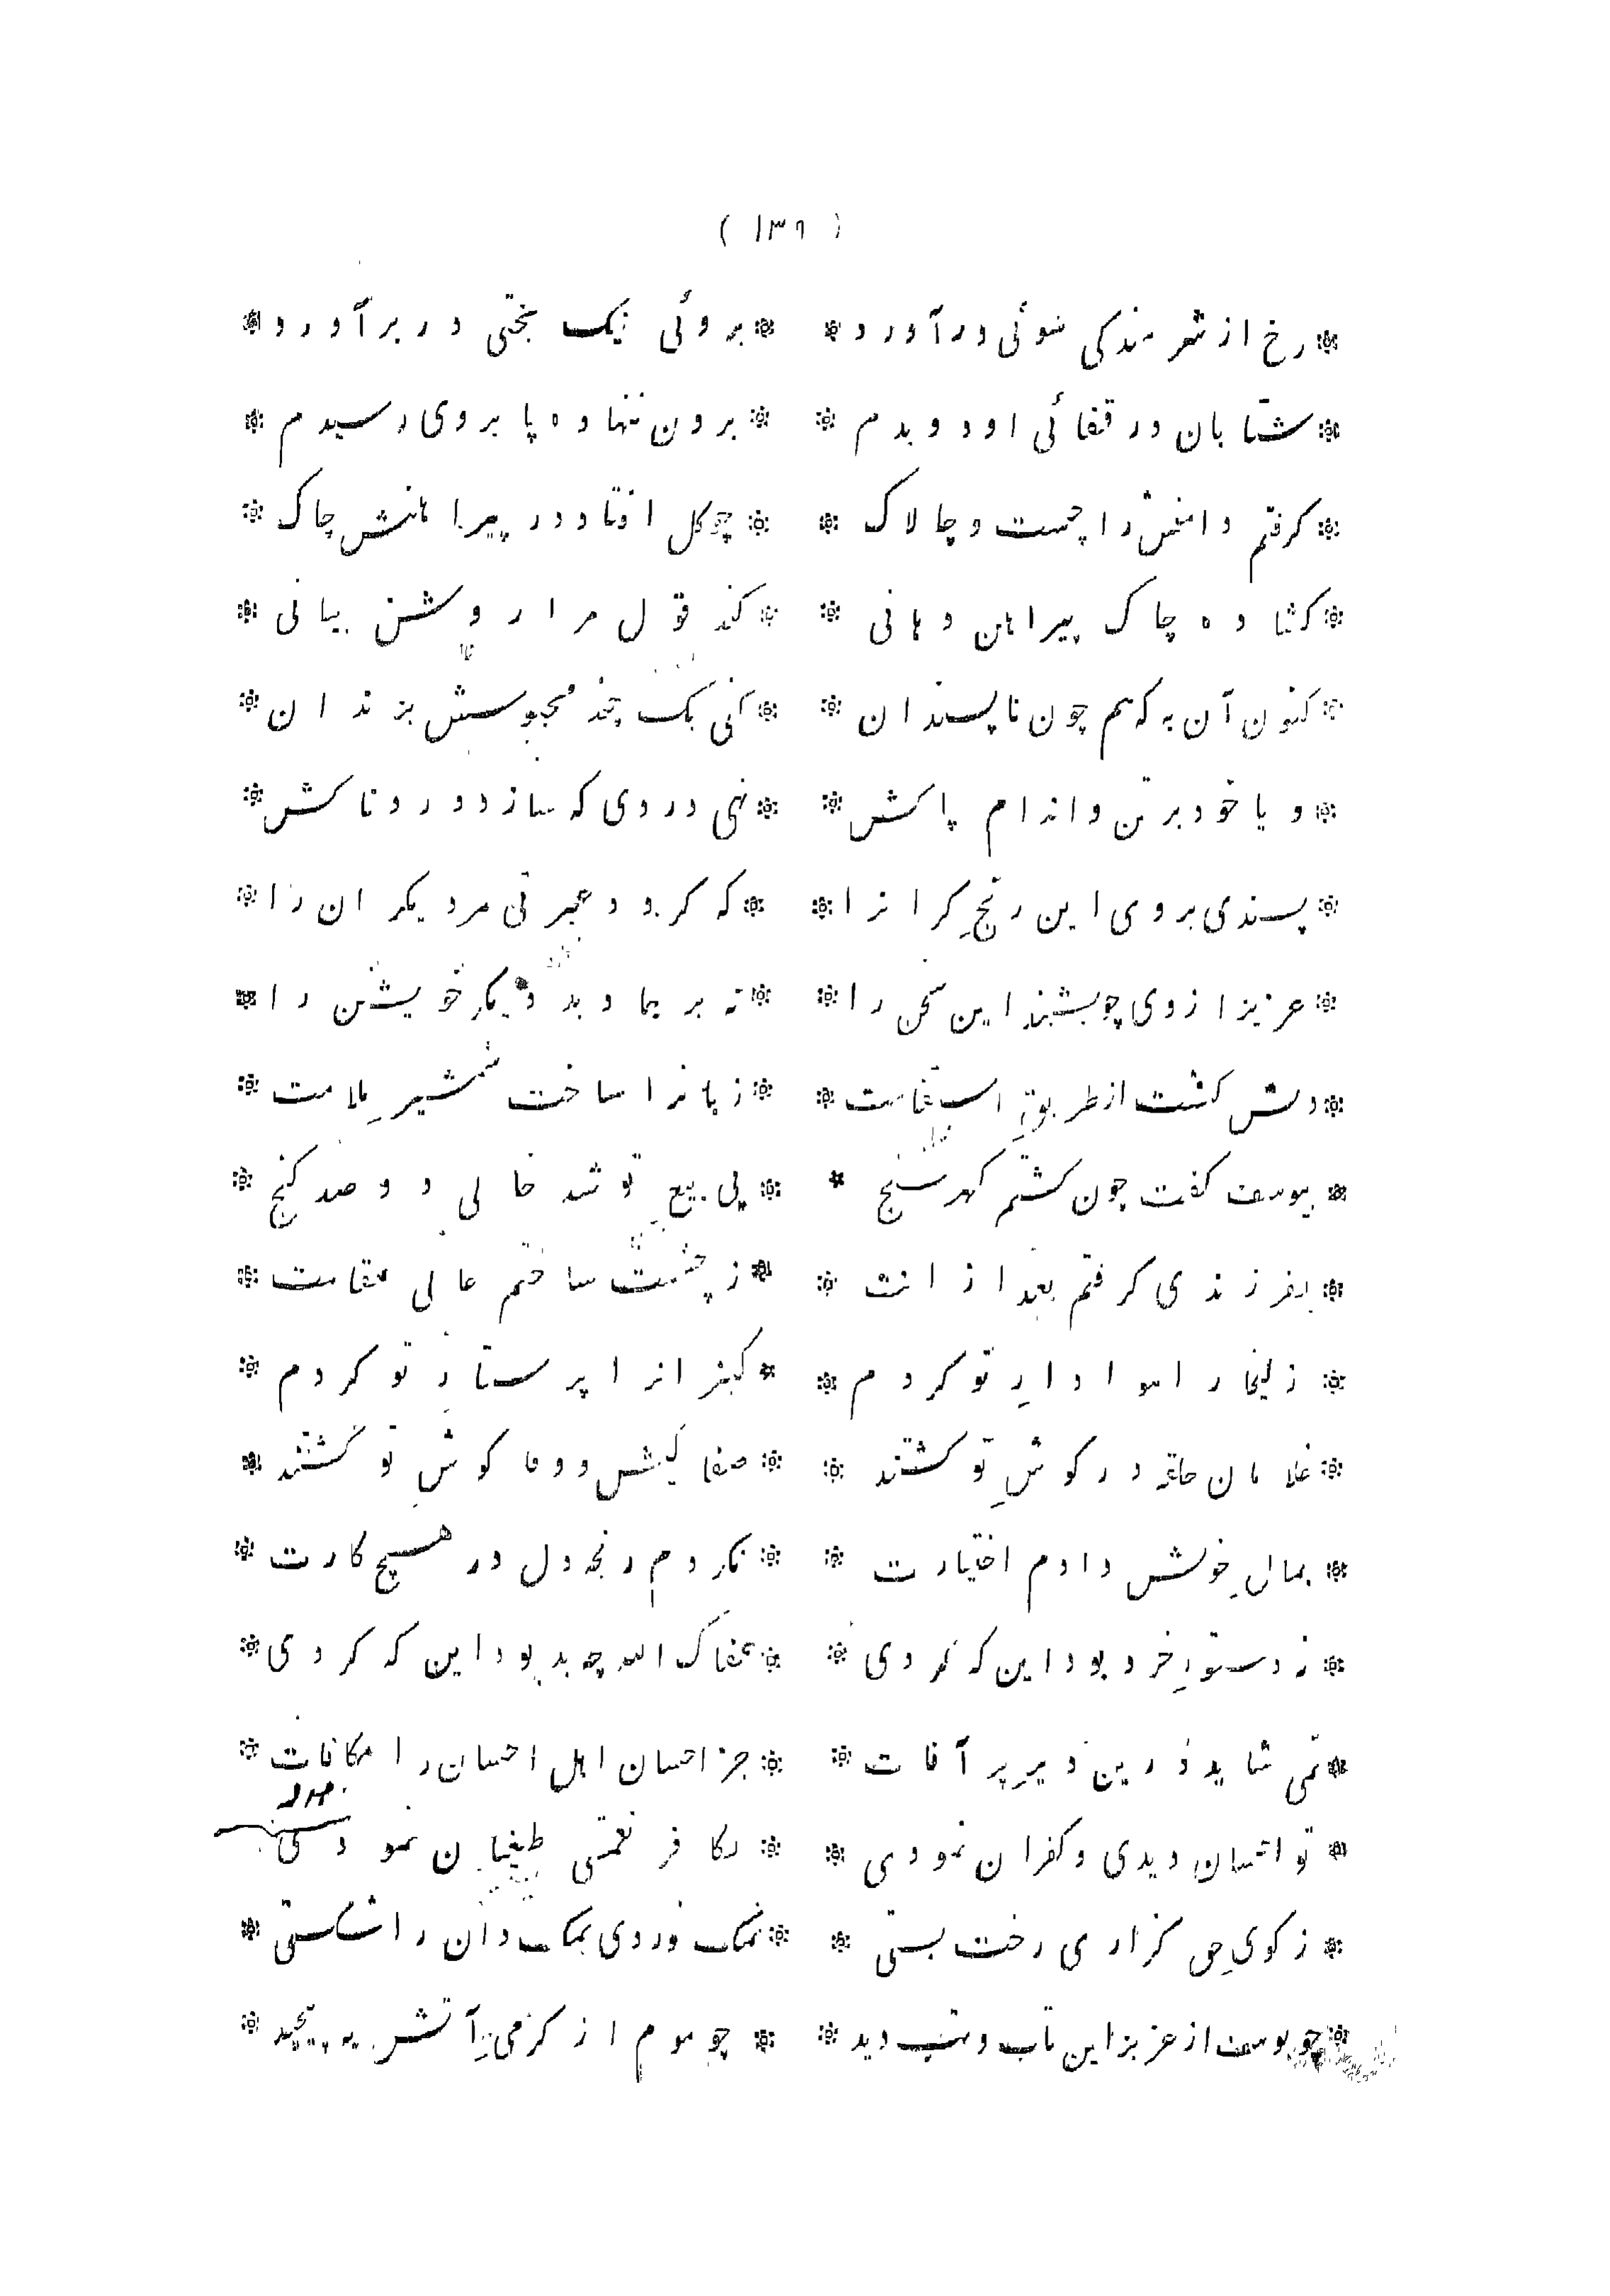 ( ۱۳۶ )
* رخ از شرمندکی سوئی در آورد * * بروئی نیک بختی در بر آورد *
* شتابان در قفائی او دویدم * * برون ننهاده پا بروی رسیدم *
* کرفتم دامنش را چست و چالاک * * چو کل افتاد در پیراهنش چاک *
* کشاده چاک پیراهن دهانی * * کند قول مرا روشن بیانی *
* کنون آن به که هم چون ناپسندان * * کنی یک چند محبوسش بزندان *
* و یا خود بر تن و اندام پاکش * * نهی دردی که سازد دردناکش *
* پسندی بروی این رنج کرانرا * * که کردد عبرتی مر دیکران را *
* عزیز از وی چو بشنید این سخن را * * نه بر جا دید دیکر خویشتن را *
* دلش کشت از طریق استقامت * * زبانرا ساخت شمشیر ملامت *
* بیوسف کفت چون کشتم کهر سنج * * پی بیع تو شد خالی دو صد کنج *
* بفرزندی کرفتم بعد ازانت * * ز حشمت ساختم عالی مقامت *
* زلیخا را هوادار تو کردم * * کنیزانرا پرستار تو کردم *
* غلامان حلقه در کوش تو کشتند * * صفا کیش و وفا کوش تو کشتند *
* بمال خویش دادم اختیارت * * نکردم رنجه دل در هیچ کارت *
* نه دستور خرد بود این که کردی * * عفاک الله چه بد بود این که کردی *
* نمی شاید درین دیر پر آفات * * جز احسان اهل احسان را مکافات *
* تو احسان دیدی و کفران نمودی * * بکافر نعمتی طغیان نمودی
* ز کوی حق کزاری رخت بستی * * نمک خوردی نمکدان را شکستی *
* چو یوسف از عزیز این تاب و تب دید * * چو موم از کرمی آتش به پیچید *